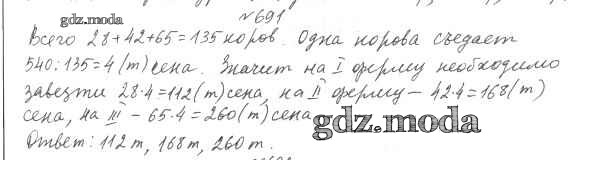 №691
gdz.moda
Всего 28+42+65=135 коров. Одна корова съедает
540:135=4(т) сена. Значит на I ферму необходимо
завезти 28·4=112(т) сена, на II ферму – 42·4=168(т)
сена, на III – 65·4=260(т) сена.
gdz.moda
Ответ: 112т, 168т, 260т.